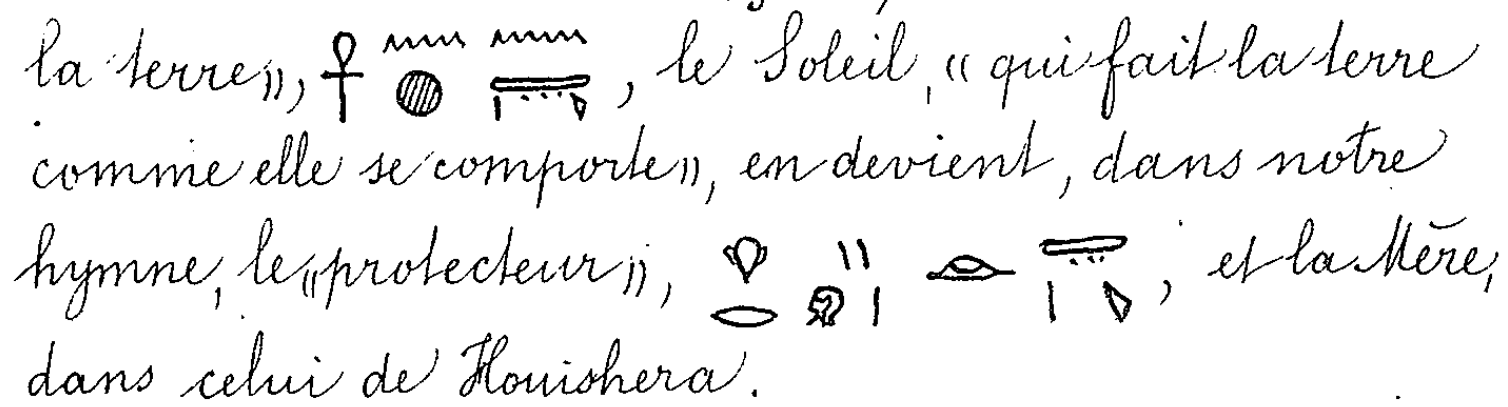 la terre», 𓋹𓈖𓐍 𓈖𓇾, le Soleil, « qui fait la terre
comme elle se comporte», en devient, dans notre
hymne, le «protecteur», et la Mère,
dans celui de Houishera.